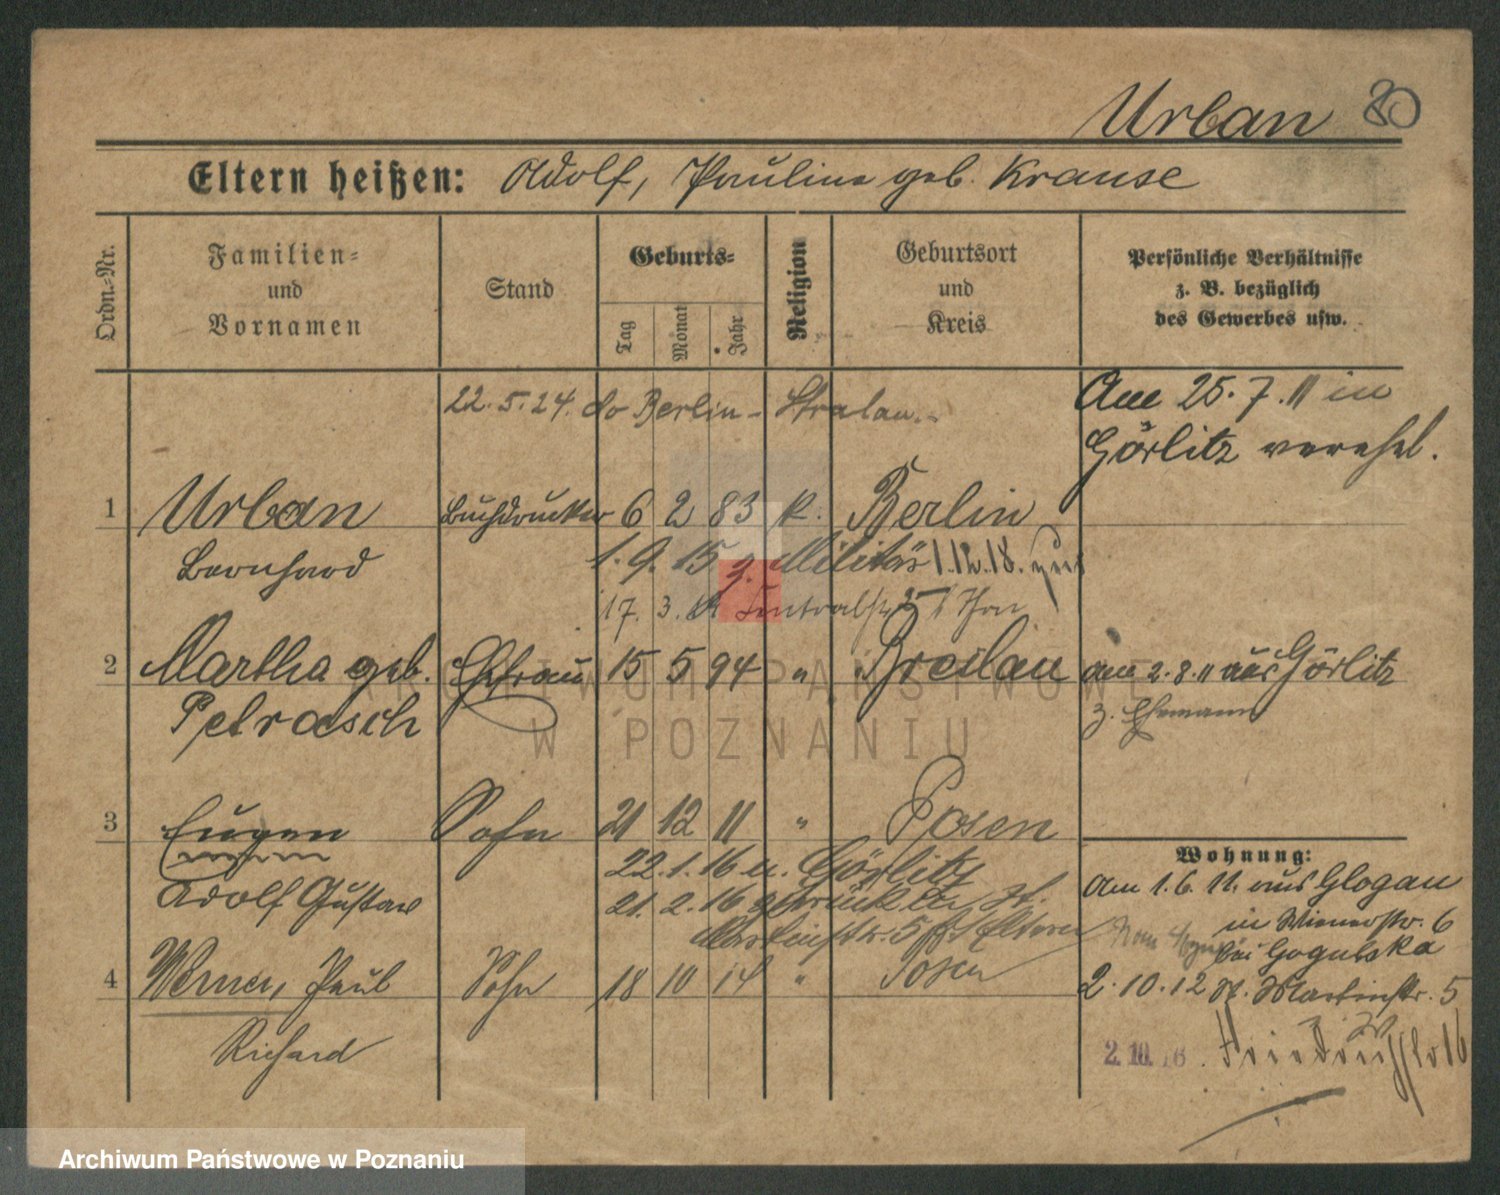 Urban 80
Eltern heißen: Adolf, Pauline geb. Krause
Ordn.-Nr.
Familien-
und
Vornamen
Stand
Geburts-
Tag
Monat
Jahr
Religion
Geburtsort
und
Kreis
Persönliche Verhältnisse
z. B. bezüglich
des Gewerbes usw.
22.5.24. do Berlin-Stralau.
Am 25.7.11 in
Görlitz verehel.
1 Urban Buchdrucker 6 2 83 k. Berlin
Bernhard
1.9.15 z. Militär 1.12.18.
17.3.
2 Martha geb. Ehefrau 15 5 94 " Breslau am 2.8.11 aus Görlitz
Petrasch
z. Ehemann
3 Eugen Sohn 21 12 11 " Posen
Adolf Gustav
22.1.16 n. Görlitz
21.2.16 zurück St.
Martinstr. 5 z. Eltern
4 Werner, Paul Sohn 18 10 14 " Posen
Richard
Wohnung:
Am 1.6.11. aus Glogau
in Wienerstr. 6
bei Gogulska
2.10.12 St. Martinstr. 5
2.10.16.
ARCHIWUM PAŃSTWOWE
W POZNANIU
Archiwum Państwowe w Poznaniu